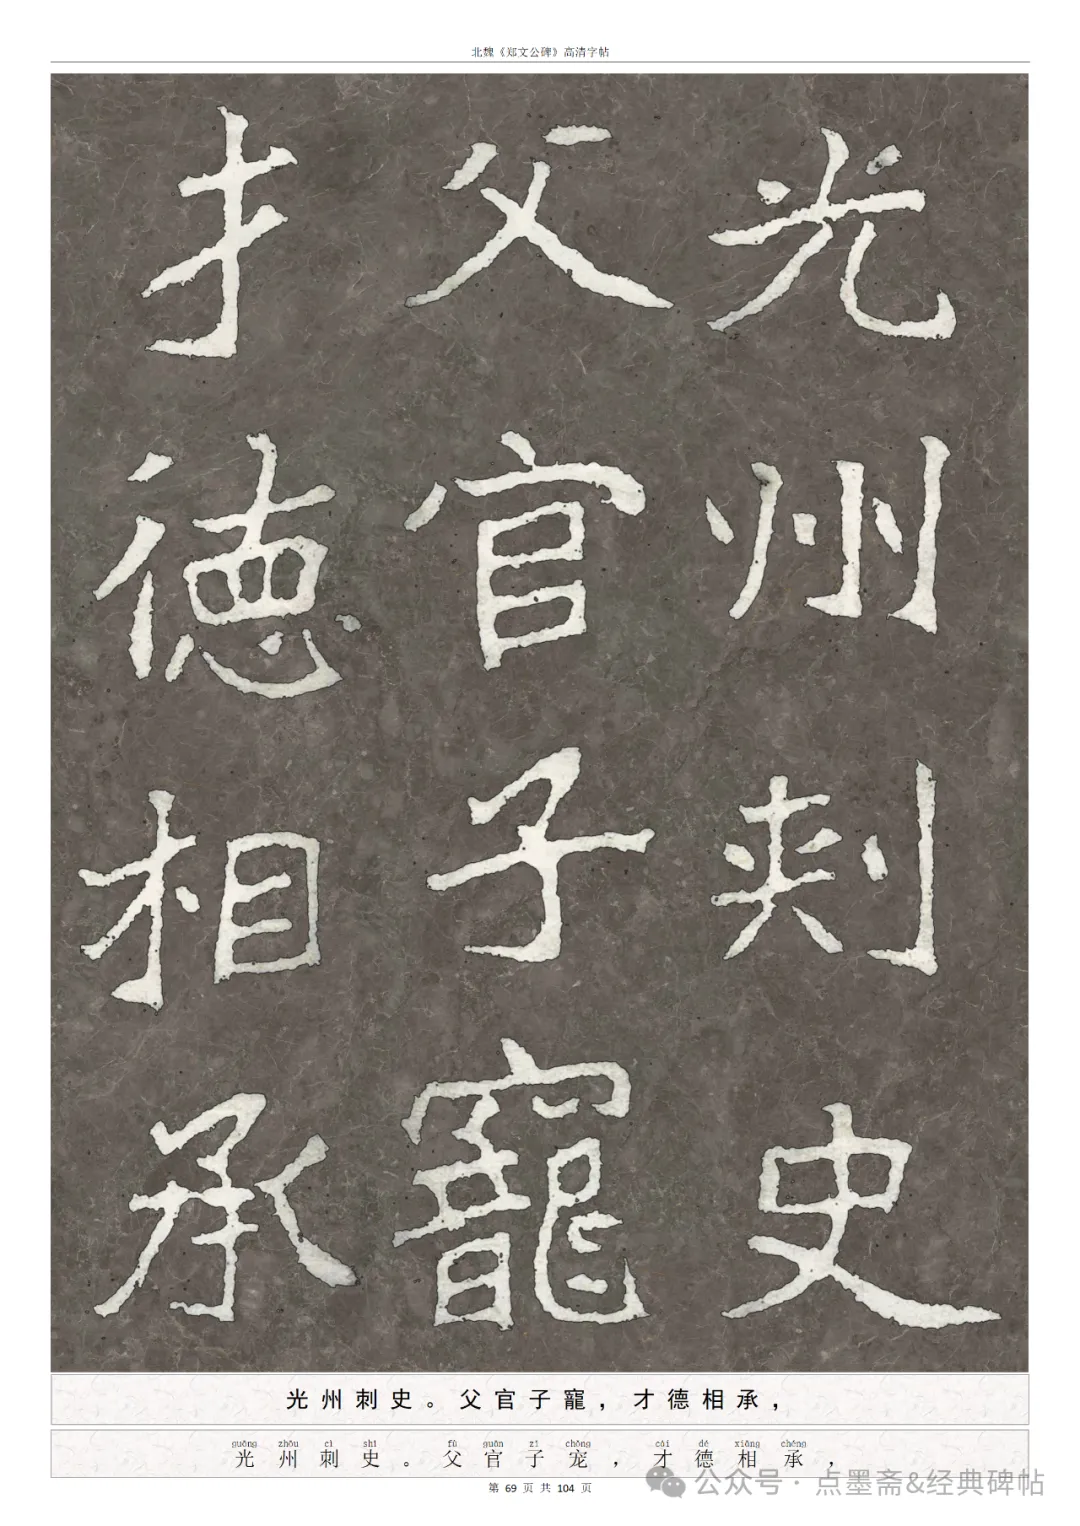 北魏《郑文公碑》高清字帖
光州刺史
父官子寵
才德相承
光州刺史。父官子寵，才德相承，
guāng zhōu cì shǐ fù guān zǐ chǒng cái dé xiāng chéng
光州刺史。父官子宠，才德相承，
第 69 页 共 104 页
公众号 · 点墨斋&经典碑帖